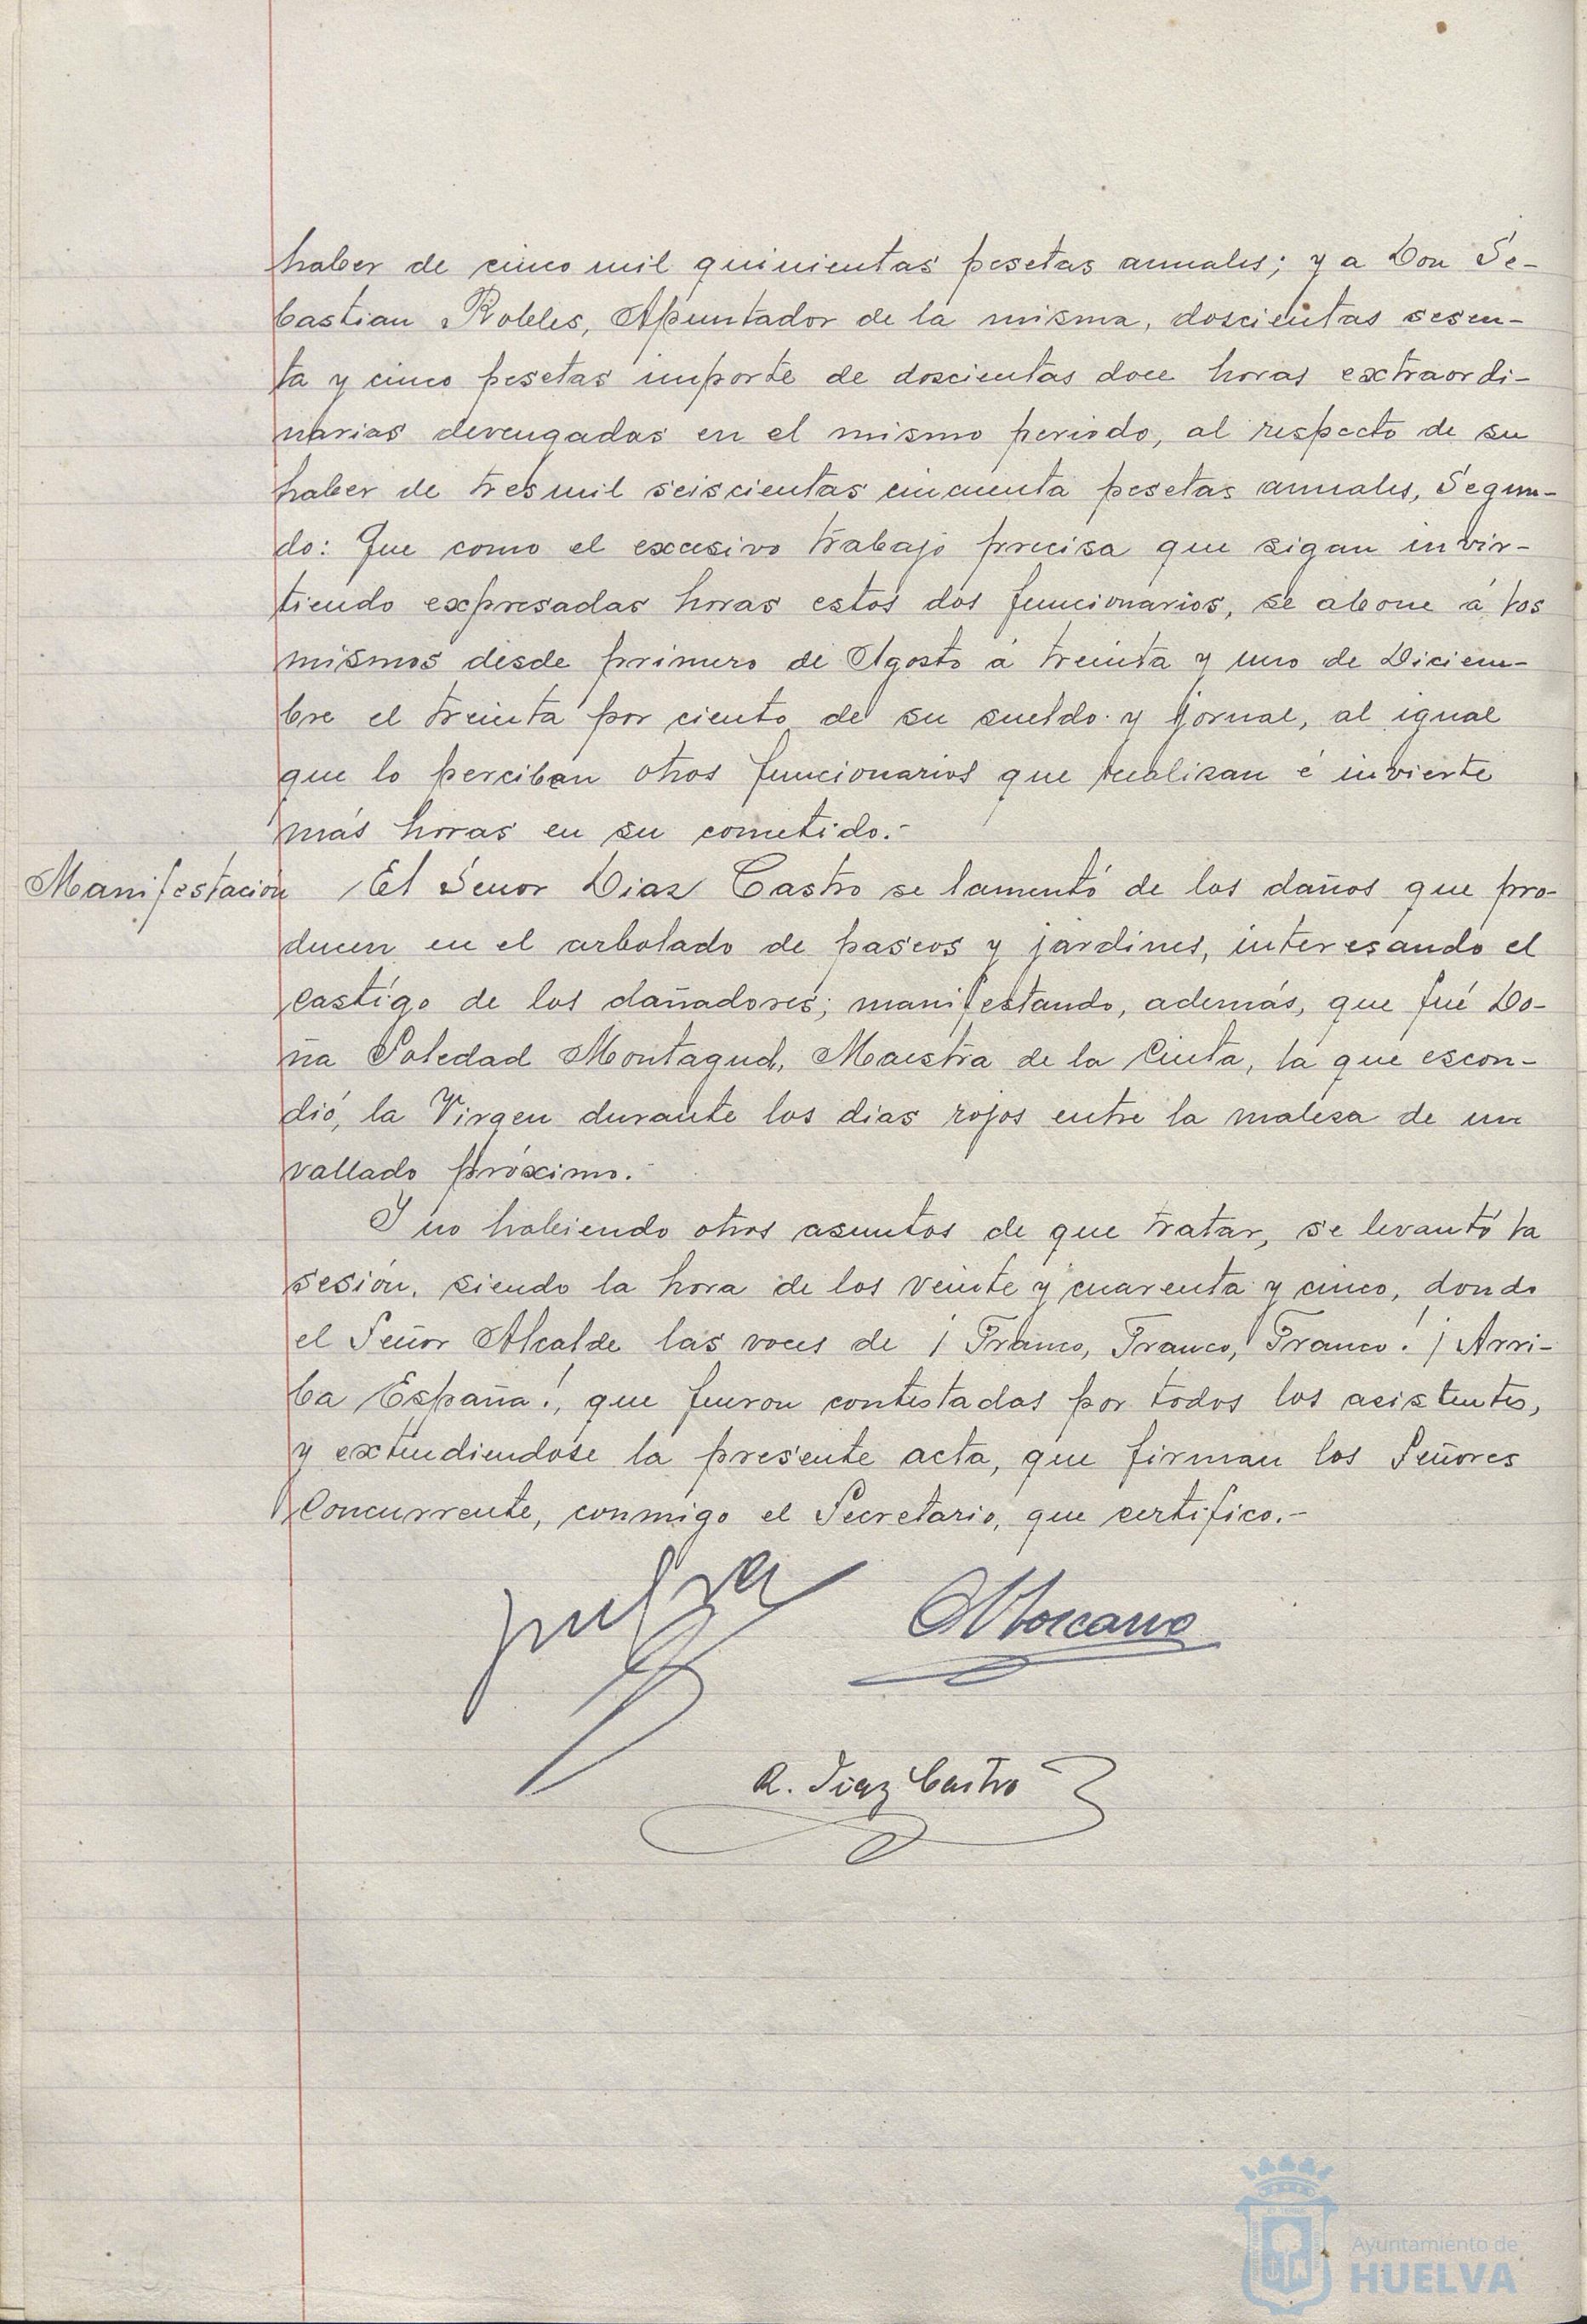 haber de cinco mil quinientas pesetas anuales; y a Don Se-
bastian Robles, Apuntador de la misma, doscientas sesen-
ta y cinco pesetas importe de doscientas doce horas extraordi-
narias devengadas en el mismo periodo, al respecto de su
haber de tres mil seiscientas cincuenta pesetas anuales, Segun-
do: Que como el excesivo trabajo precisa que sigan invir-
tiendo expresadas horas estos dos funcionarios, se abone á los
mismos desde primero de Agosto á treinta y uno de Diciem-
bre el treinta por ciento de su sueldo y jornal, al igual
que lo perciben otros funcionarios que realizan é invierte
más horas en su cometido.-
Manifestacion El Señor Diaz Castro se lamentó de los daños que pro-
ducen en el arbolado de paseos y jardines, interesando el
castigo de los dañadores; manifestando, además, que fué Do-
ña Soledad Montagud, Maestra de la Cinta, la que escon-
dió, la Virgen durante los dias rojos entre la maleza de un
vallado próximo.-
Y no habiendo otros asuntos de que tratar, se levantó la
sesión, siendo la hora de los veinte y cuarenta y cinco, dando
el Señor Alcalde las voces de ¡Franco, Franco, Franco! ¡Arri-
ba España!, que fueron contestadas por todos los asistentes,
y extendiendose la presente acta, que firman los Señores
Concurrente, conmigo el Secretario, que certifico.-
Toscano
R. Diaz Castro
Ayuntamiento de
HUELVA